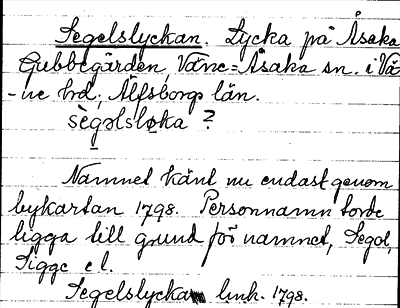 Segelslyckan. Lycka på Åsaka
Gubbegården, Väne=Åsaka sn. i Vä-
-ne hd, Älfsborgs län.
sègəlsløka ?
Namnet känt nu endast genom
bykartan 1798. Personnamn torde
ligga till grund för namnet, Segol,
Sigge e l.
Segelslyckan link. 1798.